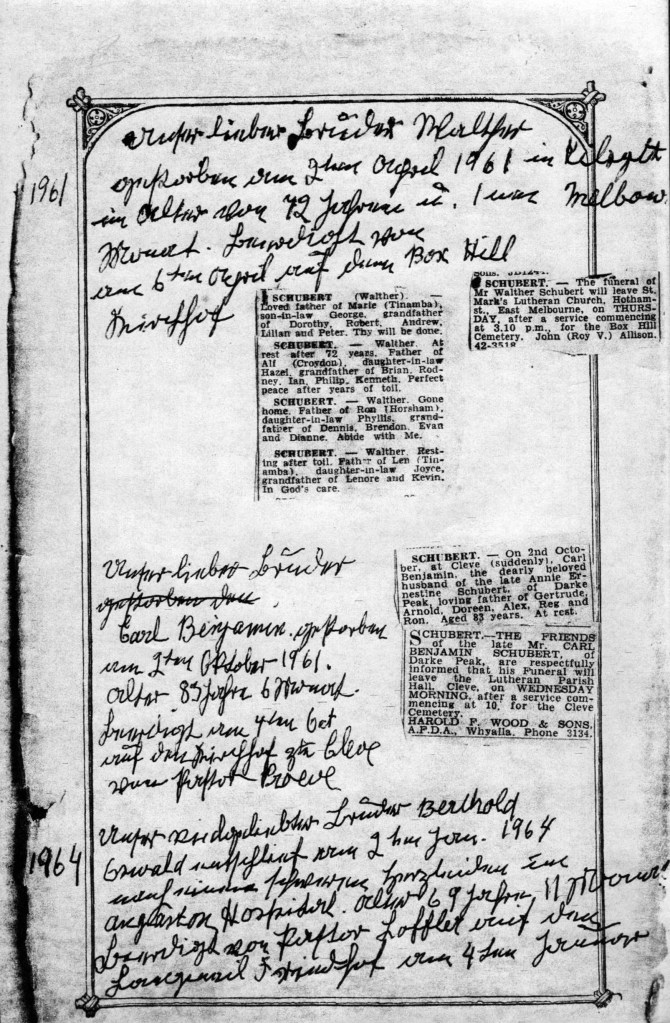 1961
Unser lieber Bruder Walther
gestorben am 2ten April 1961 in Kilsyth
im Alter von 72 Jahren u. 1 Melbour
Monat. Beerdigt von
am 6ten April auf dem Box Hill
Kirchhof
SCHUBERT (Walther).
Loved father of Marie (Tinamba),
son-in-law George, grandfather
of Dorothy, Robert, Andrew,
Lilian and Peter. Thy will be done.
SCHUBERT. — Walther. At
rest after 72 years. Father of
Alf (Croydon), daughter-in-law
Hazel, grandfather of Brian, Rod-
ney, Ian, Philip, Kenneth. Perfect
peace after years of toil.
SCHUBERT. — Walther. Gone
home. Father of Ron (Horsham),
daughter-in-law Phyllis, grand-
father of Dennis, Brendon, Evan
and Dianne. Abide with Me.
SCHUBERT. — Walther. Rest-
ing after toil. Father of Len (Tin-
amba), daughter-in-law Joyce,
grandfather of Lenore and Kevin.
In God's care.
SCHUBERT. — The funeral of
Mr Walther Schubert will leave St.
Mark's Lutheran Church, Hotham-
st., East Melbourne, on THURS-
DAY, after a service commencing
at 3.10 p.m., for the Box Hill
Cemetery. John (Roy V.) Allison.
42-3518
Unser lieber Bruder
gestorben den
Carl Benjamin. gestorben
am 2ten Oktober 1961.
Alter 83 Jahre 6 Monat.
beerdigt am 4ten Oct
auf den Kirchhof zu Cleve
von Pastor
SCHUBERT. — On 2nd Octo-
ber, at Cleve (suddenly), Carl
Benjamin, the dearly beloved
husband of the late Annie Er-
nestine Schubert, of Darke
Peak, loving father of Gertrude,
Arnold, Doreen, Alex, Reg and
Ron. Aged 83 years. At rest.
SCHUBERT.—THE FRIENDS
of the late Mr. CARL
BENJAMIN SCHUBERT, of
Darke Peak, are respectfully
informed that his Funeral will
leave the Lutheran Parish
Hall, Cleve, on WEDNESDAY
MORNING, after a service com-
mencing at 10, for the Cleve
Cemetery.
HAROLD F. WOOD & SONS,
A.F.D.A., Whyalla. Phone 3134.
1964
Unser vielgeliebter Bruder Berthold
Oswald entschlief am 2ten Jan. 1964
nach einem schweren Herzleiden im
Hospital. Alter 69 Jahre, 11 Monat
beerdigt von Pastor Löffler auf dem
Friedhof am 4ten Januar